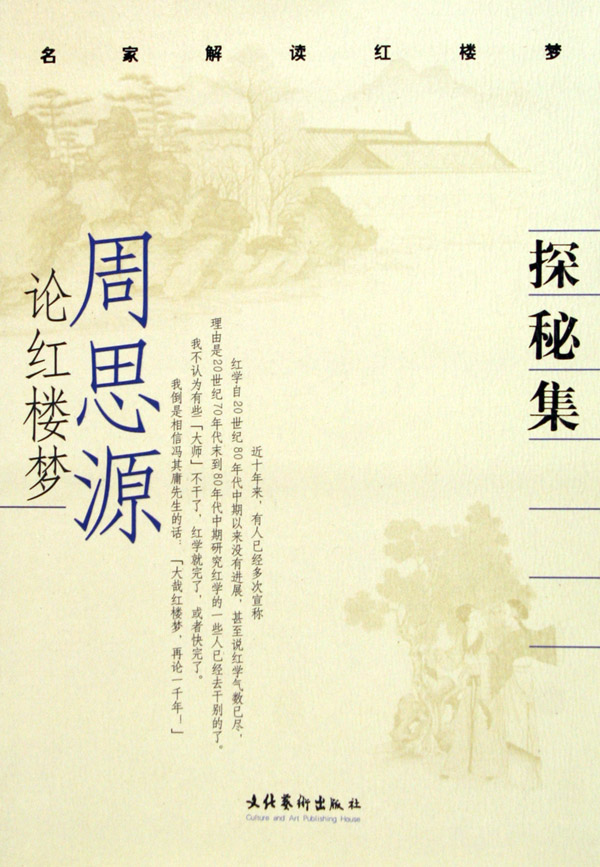 名家解读红楼梦
探秘集
周思源
论红楼梦
近十年来，有人已经多次宣称
红学自20世纪80年代中期以来没有进展，甚至说红学气数已尽，
理由是20世纪70年代末到80年代中期研究红学的一些人已经去干别的了。
我不认为有些「大师」不干了，红学就完了，或者快完了。
我倒是相信冯其庸先生的话：「大哉红楼梦，再论一千年！」
文化藝術出版社
Culture and Art Publishing House